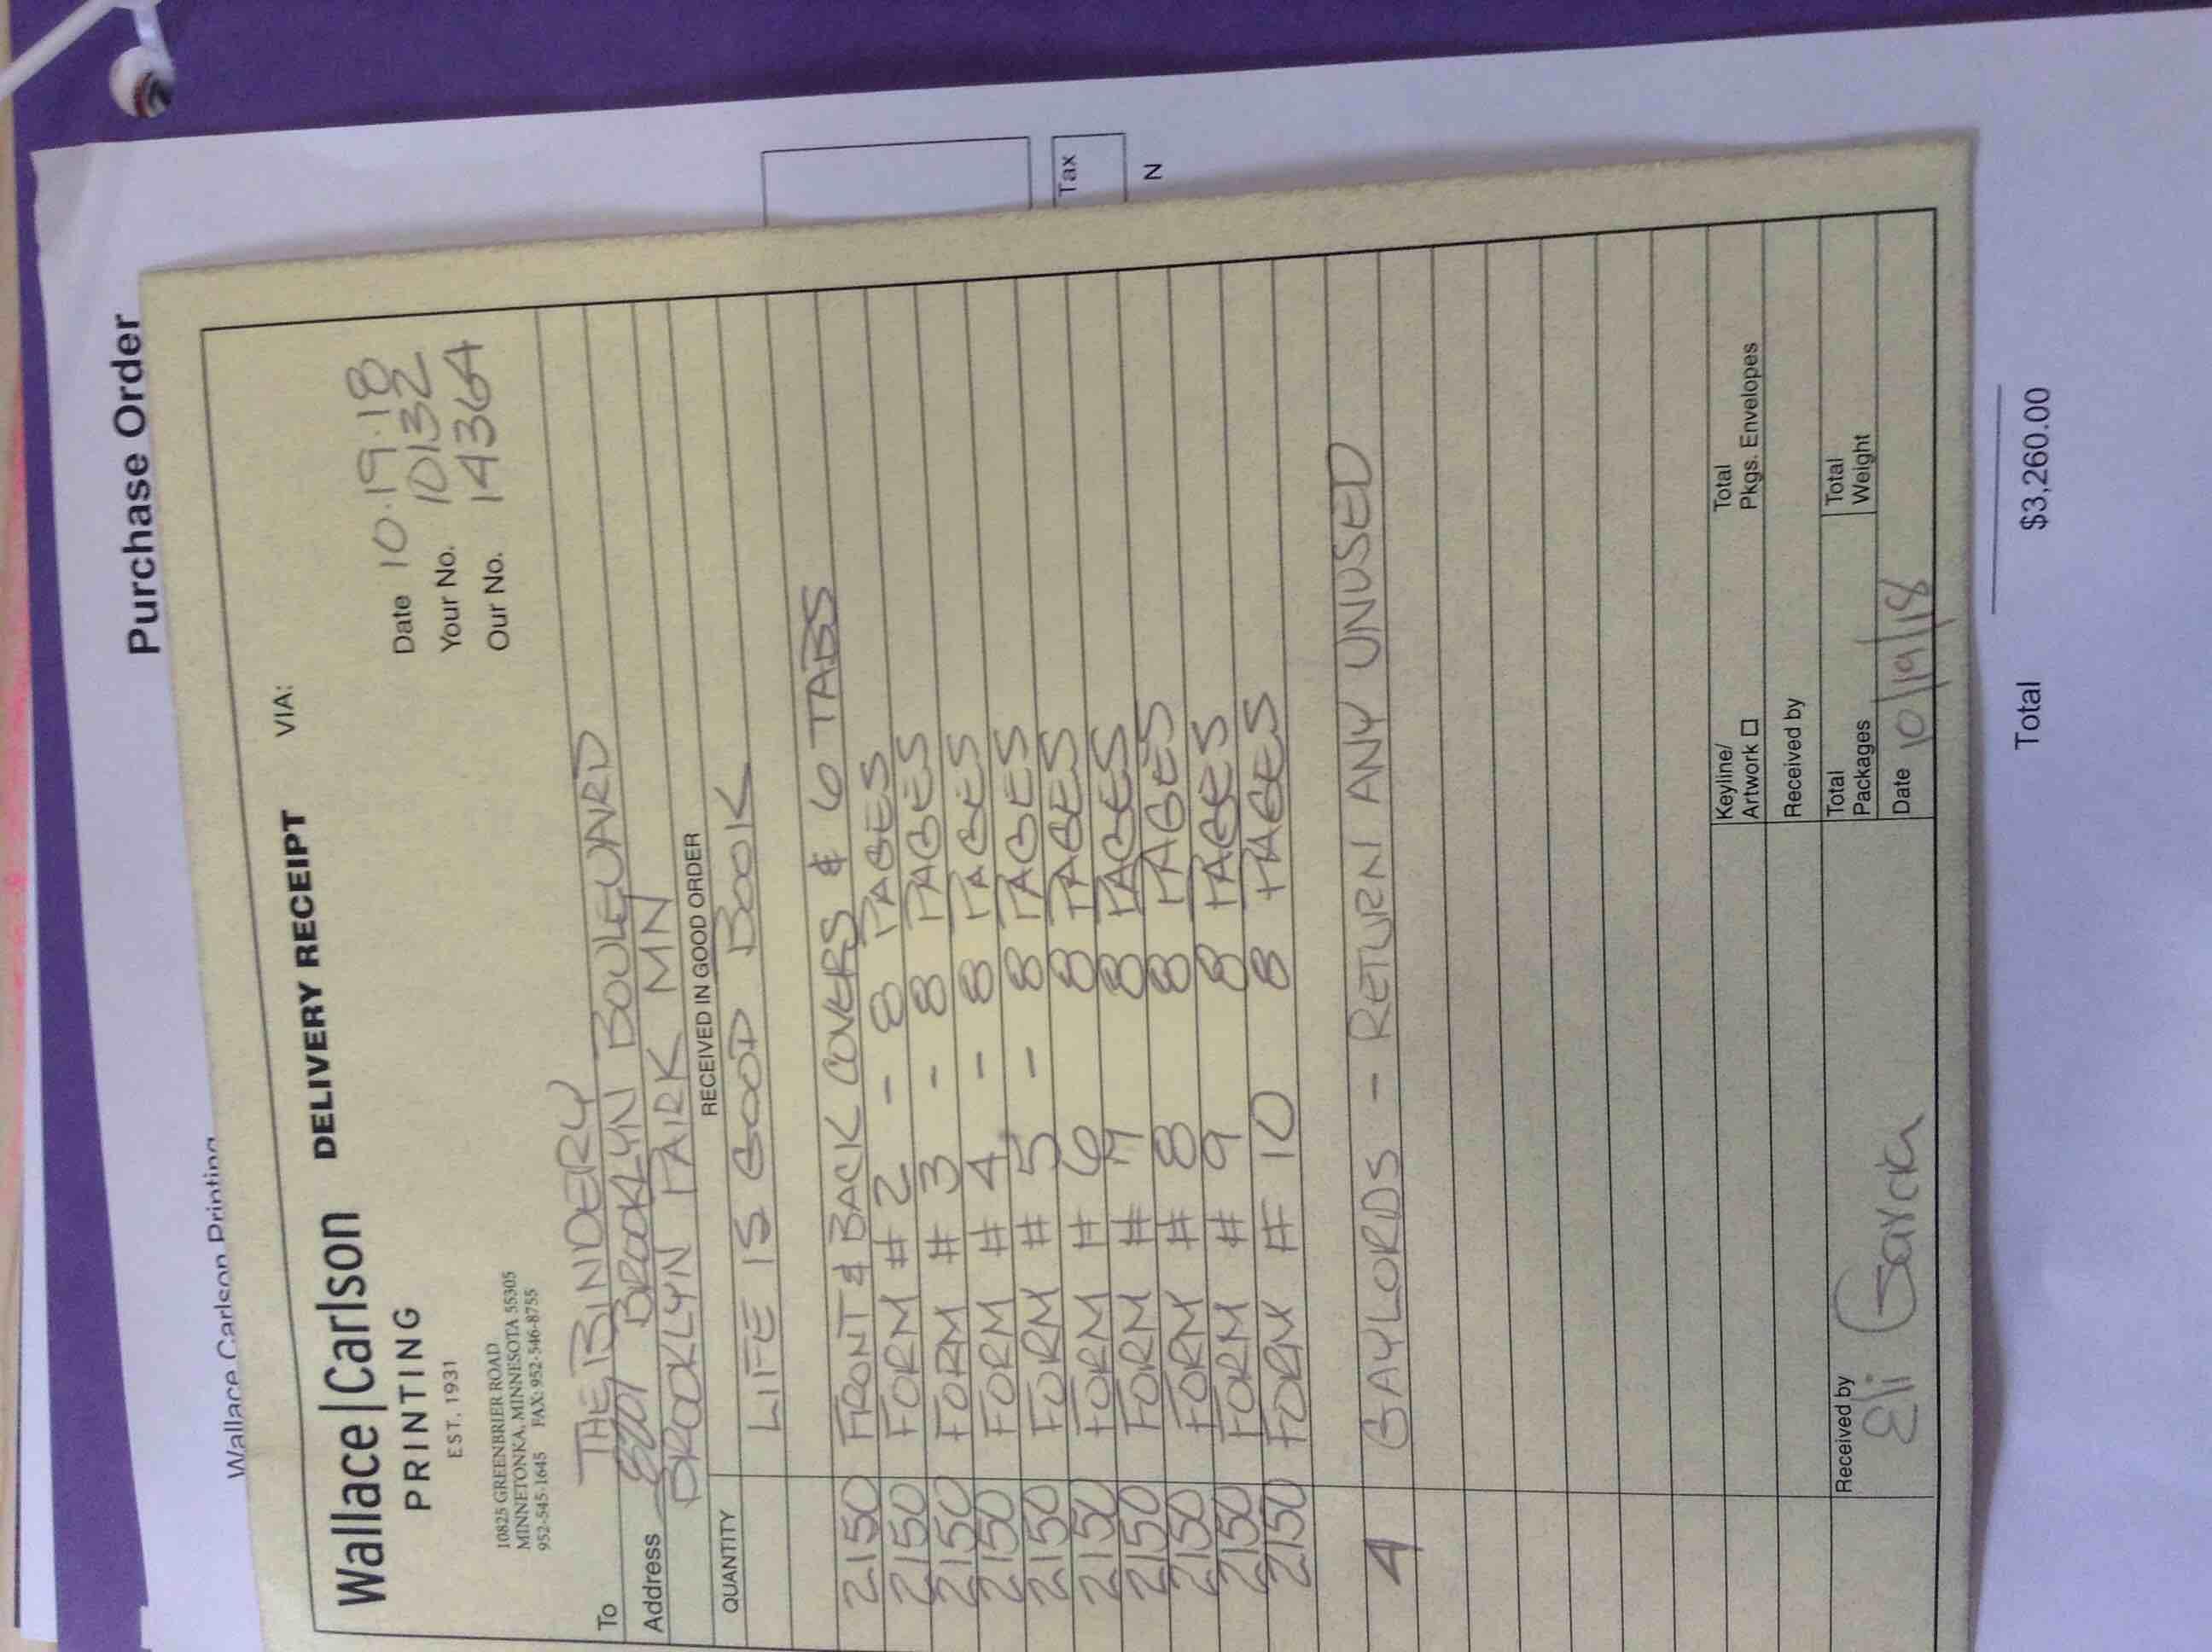 Purchase Order
Wallace Carlson Printing
Tax
N
Wallace|Carlson
PRINTING
EST. 1931
DELIVERY RECEIPT VIA:
10825 GREENBRIER ROAD
MINNETONKA, MINNESOTA 55305
952-545-1645 FAX: 952-546-8755
Date 10.19.18
Your No. 10132
Our No. 14364
To THE BINDERY
Address 8201 BROOKLYN BOULEVARD
BROOKLYN PARK MN
QUANTITY RECEIVED IN GOOD ORDER
LIFE IS GOOD BOOK
2150 FRONT & BACK COVERS & 6 TABS
2150 FORM #2 - 8 PAGES
2150 FORM #3 - 8 PAGES
2150 FORM #4 - 8 PAGES
2150 FORM #5 - 8 PAGES
2150 FORM #6 8 PAGES
2150 FORM #7 8 PAGES
2150 FORM #8 8 PAGES
2150 FORM #9 8 PAGES
2150 FORM #10 8 PAGES
4 GAYLORDS - RETURN ANY UNUSED
Keyline/
Artwork
Total
Pkgs. Envelopes
Received by
Received by
Eli Garcia
Total
Packages
Total
Weight
Date 10/19/18
Total $3,260.00